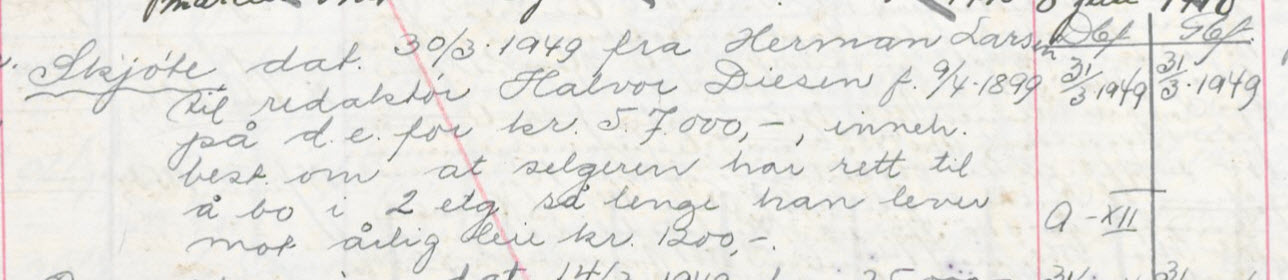 Skjøte dat. 30/3.1949 fra Herman Larsen
til redaktør Halvor Diesen f. 9/4.1899
på d. e. for kr. 57.000,-, inneh.
best. om at selgeren har rett til
å bo i 2 etg. så lenge han lever
mot årlig leie kr. 1200,-.
Dbf.
31/3.1949 31/3.1949
Q-XII
dat 14/